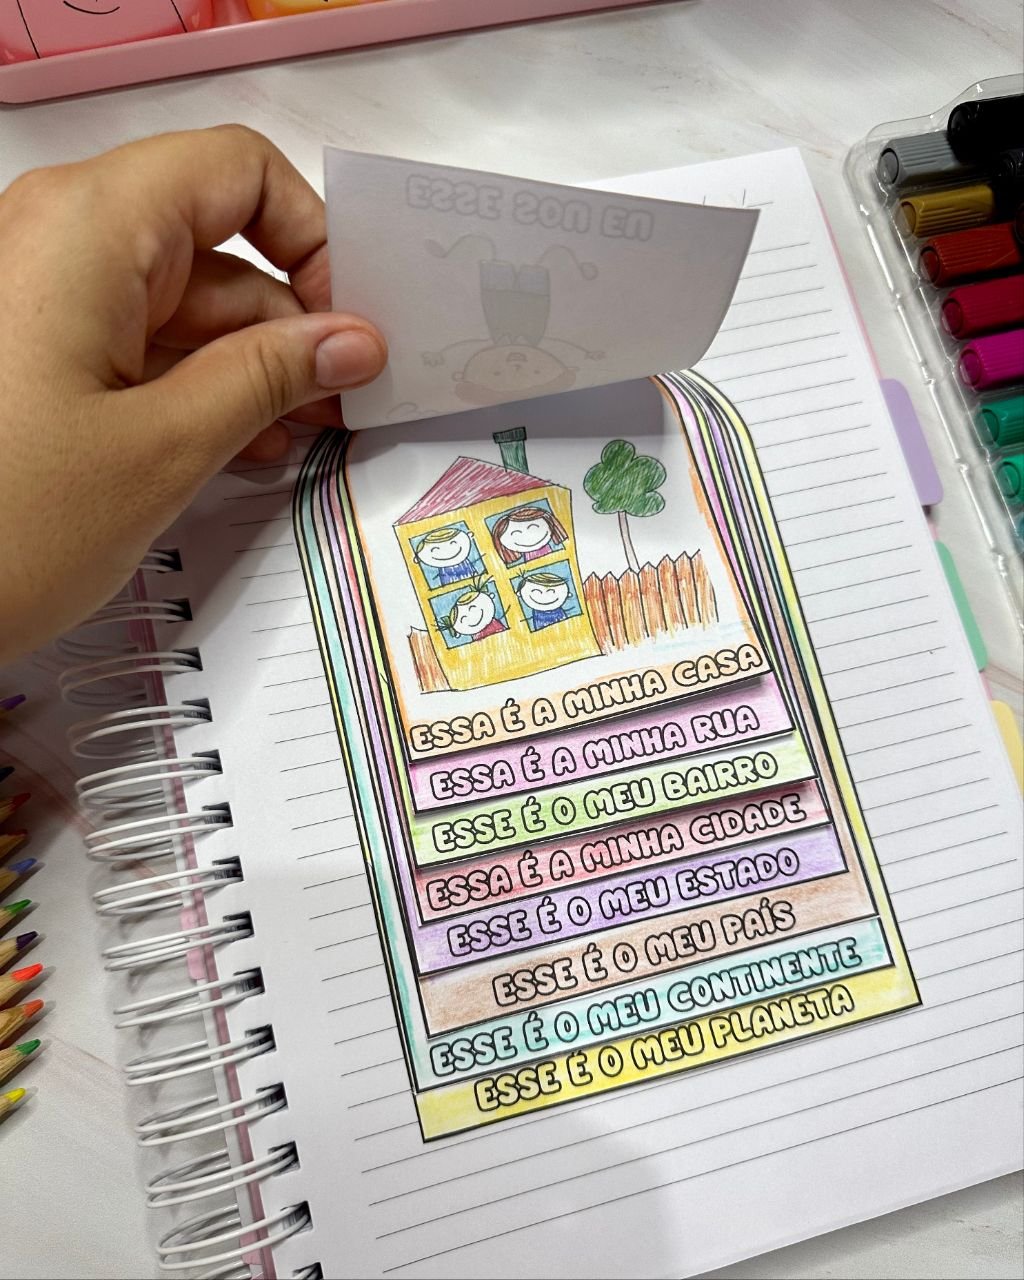 ESSE SOU EU
ESSA É A MINHA CASA
ESSA É A MINHA RUA
ESSE É O MEU BAIRRO
ESSA É A MINHA CIDADE
ESSE É O MEU ESTADO
ESSE É O MEU PAÍS
ESSE É O MEU CONTINENTE
ESSE É O MEU PLANETA